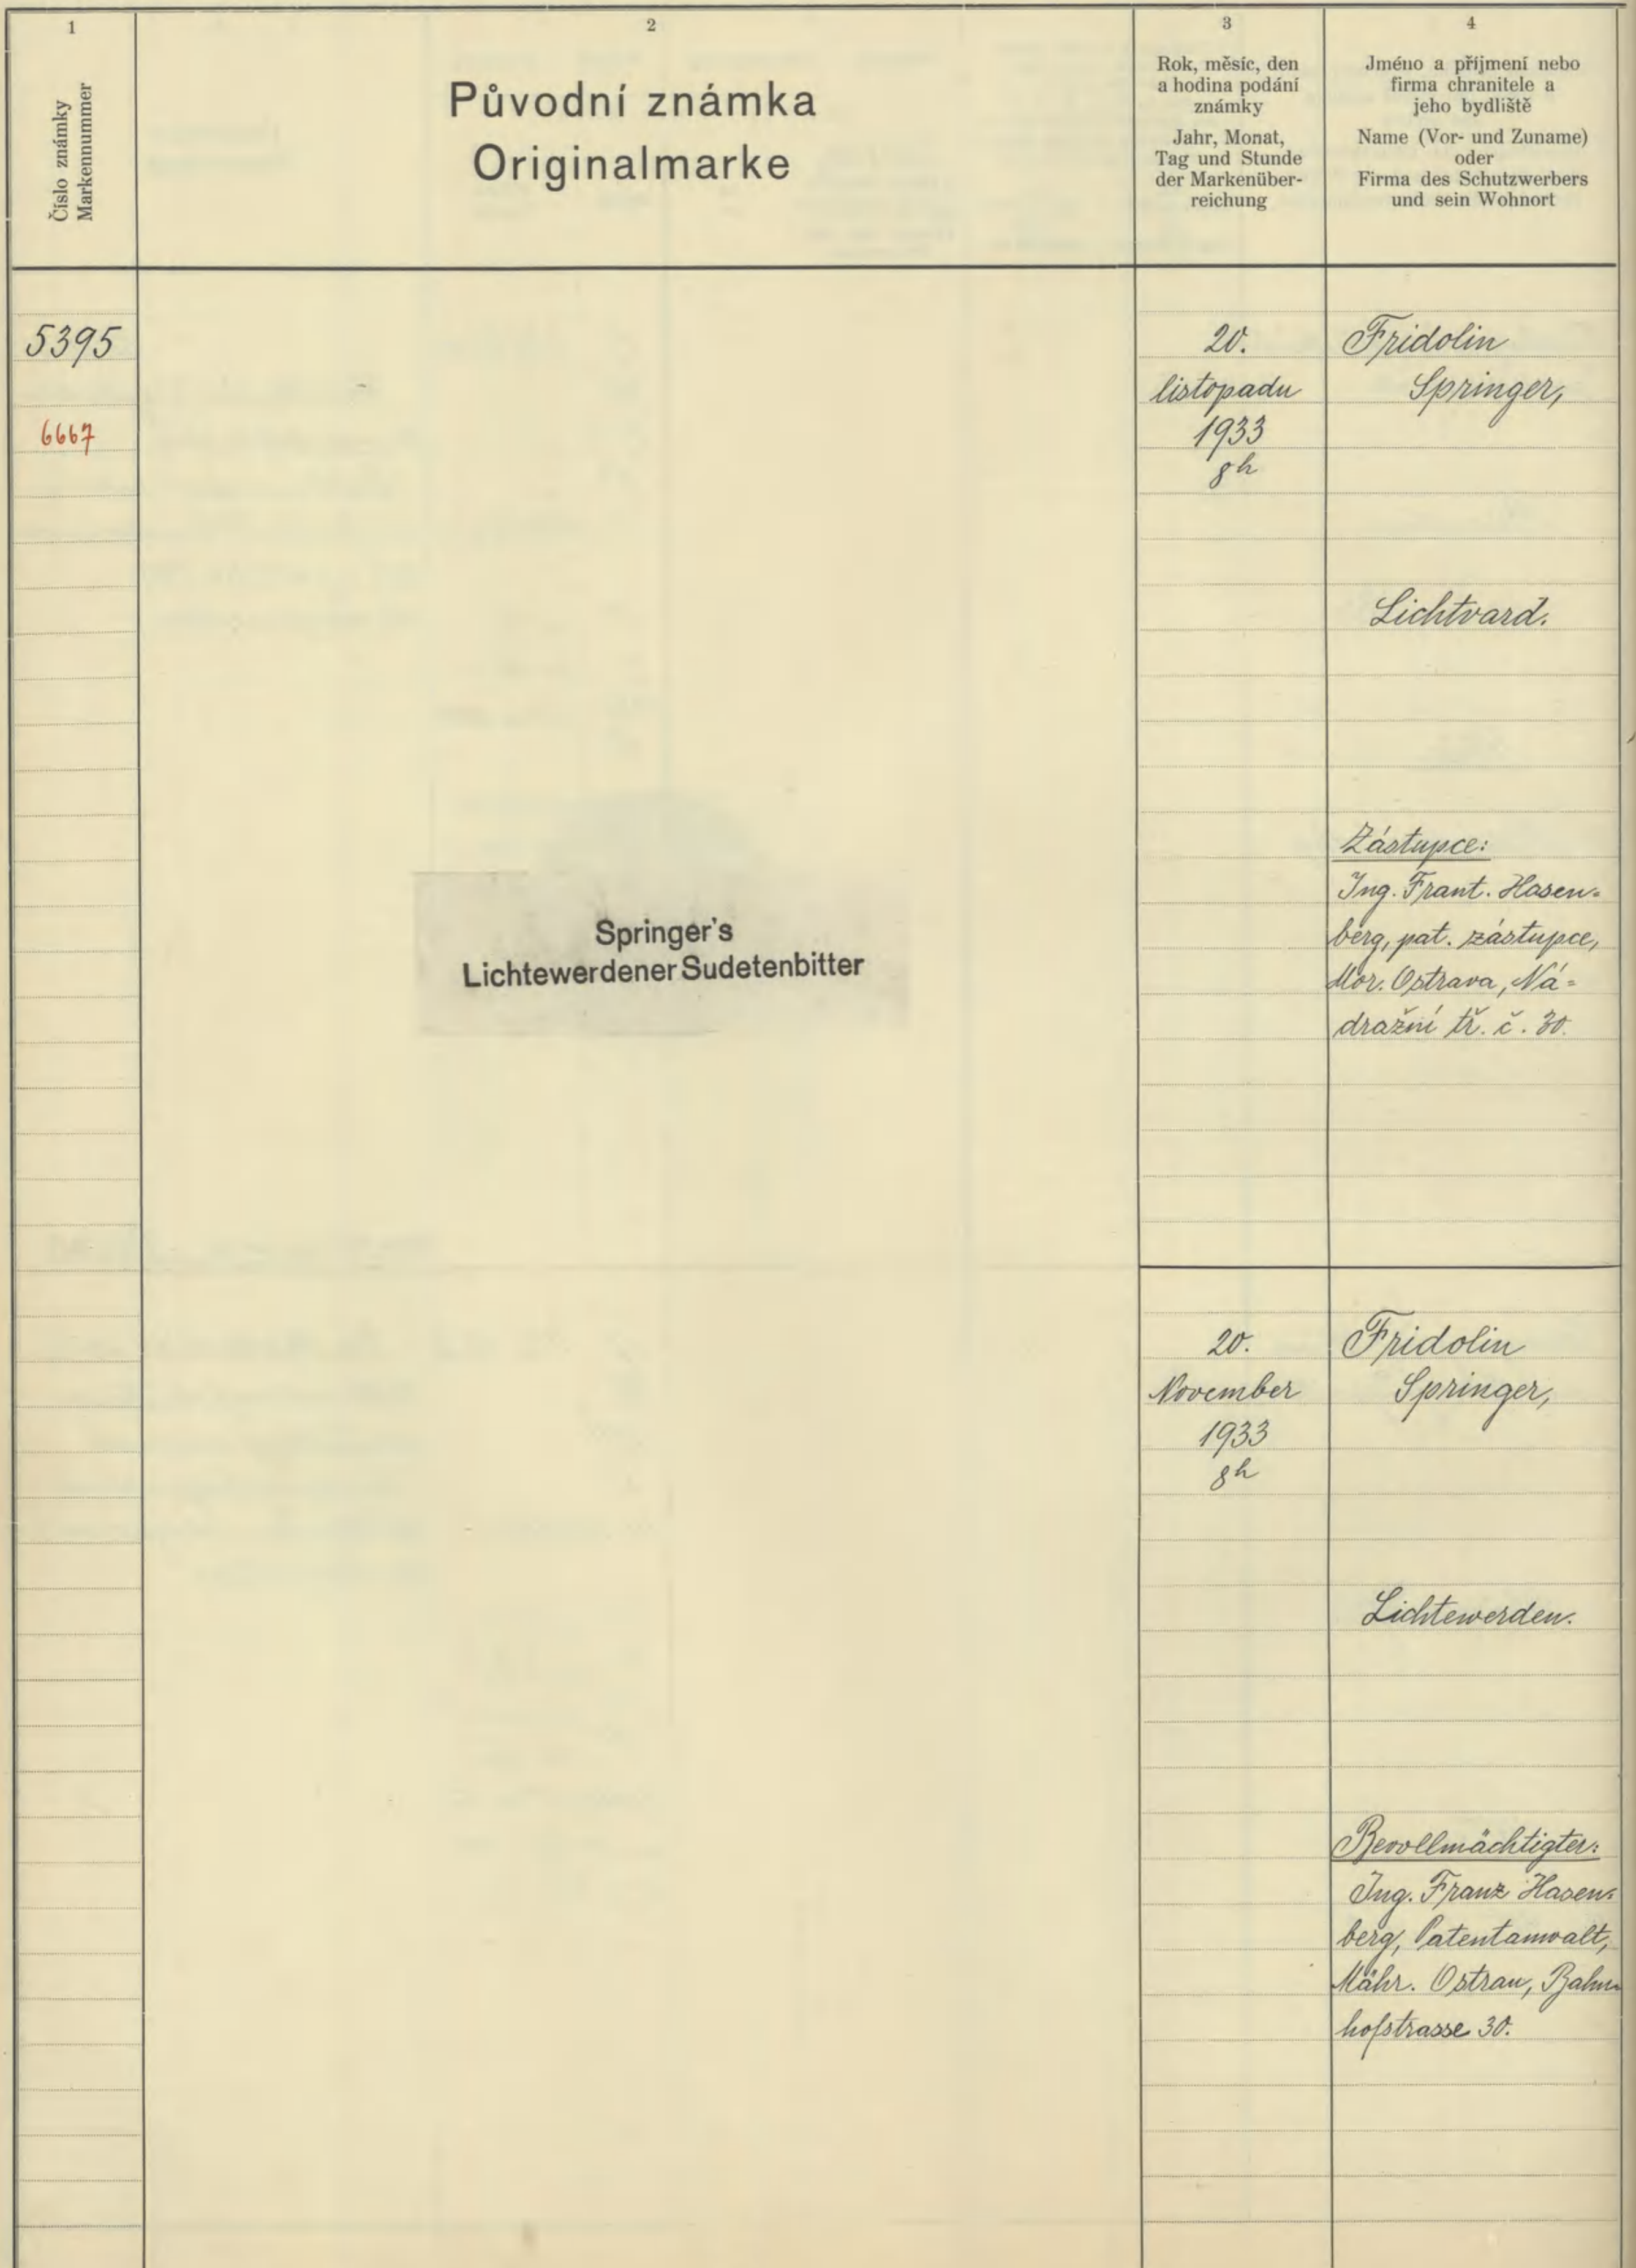 1
Číslo známky
Markennummer
2
Původní známka
Originalmarke
3
Rok, měsíc, den
a hodina podání
známky
Jahr, Monat,
Tag und Stunde
der Markenüber-
reichung
4
Jméno a příjmení nebo
firma chranitele a
jeho bydliště
Name (Vor- und Zuname)
oder
Firma des Schutzwerbers
und sein Wohnort
5395
6667
Springer's
Lichtewerdener Sudetenbitter
20.
listopadu
1933
8h
Fridolin
Springer,
Lichtvard.
Zástupce:
Ing. Frant. Hasen=
berg, pat. zástupce,
Mor. Ostrava, Ná=
dražní tř. č. 30.
20.
November
1933
8h
Fridolin
Springer,
Lichtewerden.
Bevollmächtigter:
Ing. Franz Hasen=
berg, Patentanwalt,
Mähr. Ostrau, Bahn=
hofstrasse 30.